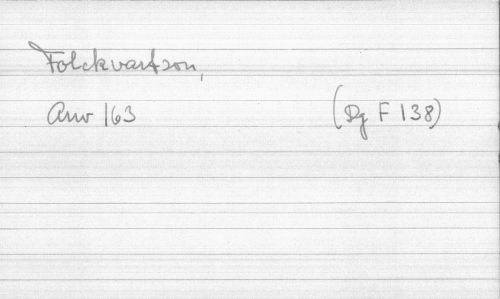 Folckvartson,
Anv 163 (Dg F 138)